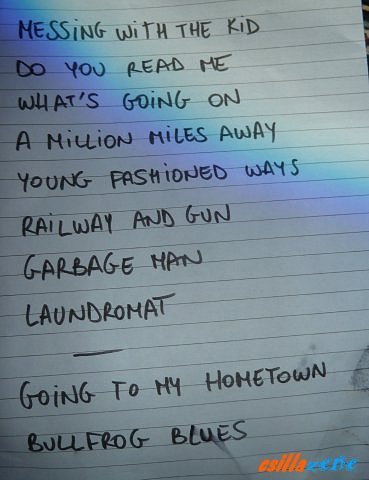 MESSING WITH THE KID
DO YOU READ ME
WHAT'S GOING ON
A MILLION MILES AWAY
YOUNG FASHIONED WAYS
RAILWAY AND GUN
GARBAGE MAN
LAUNDROMAT
GOING TO MY HOMETOWN
BULLFROG BLUES
csillazene